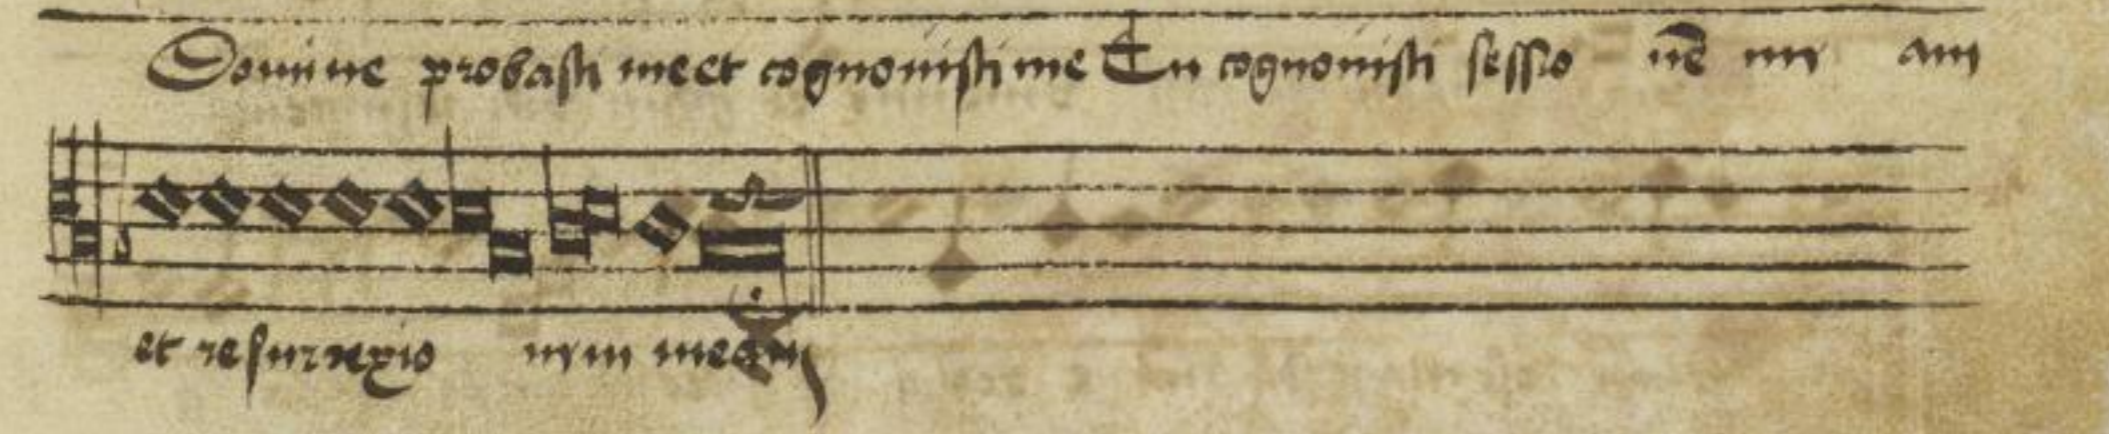 Domine probasti me et cognovisti me Tu cognovisti sessio nē m am
et resurrexio nem meam